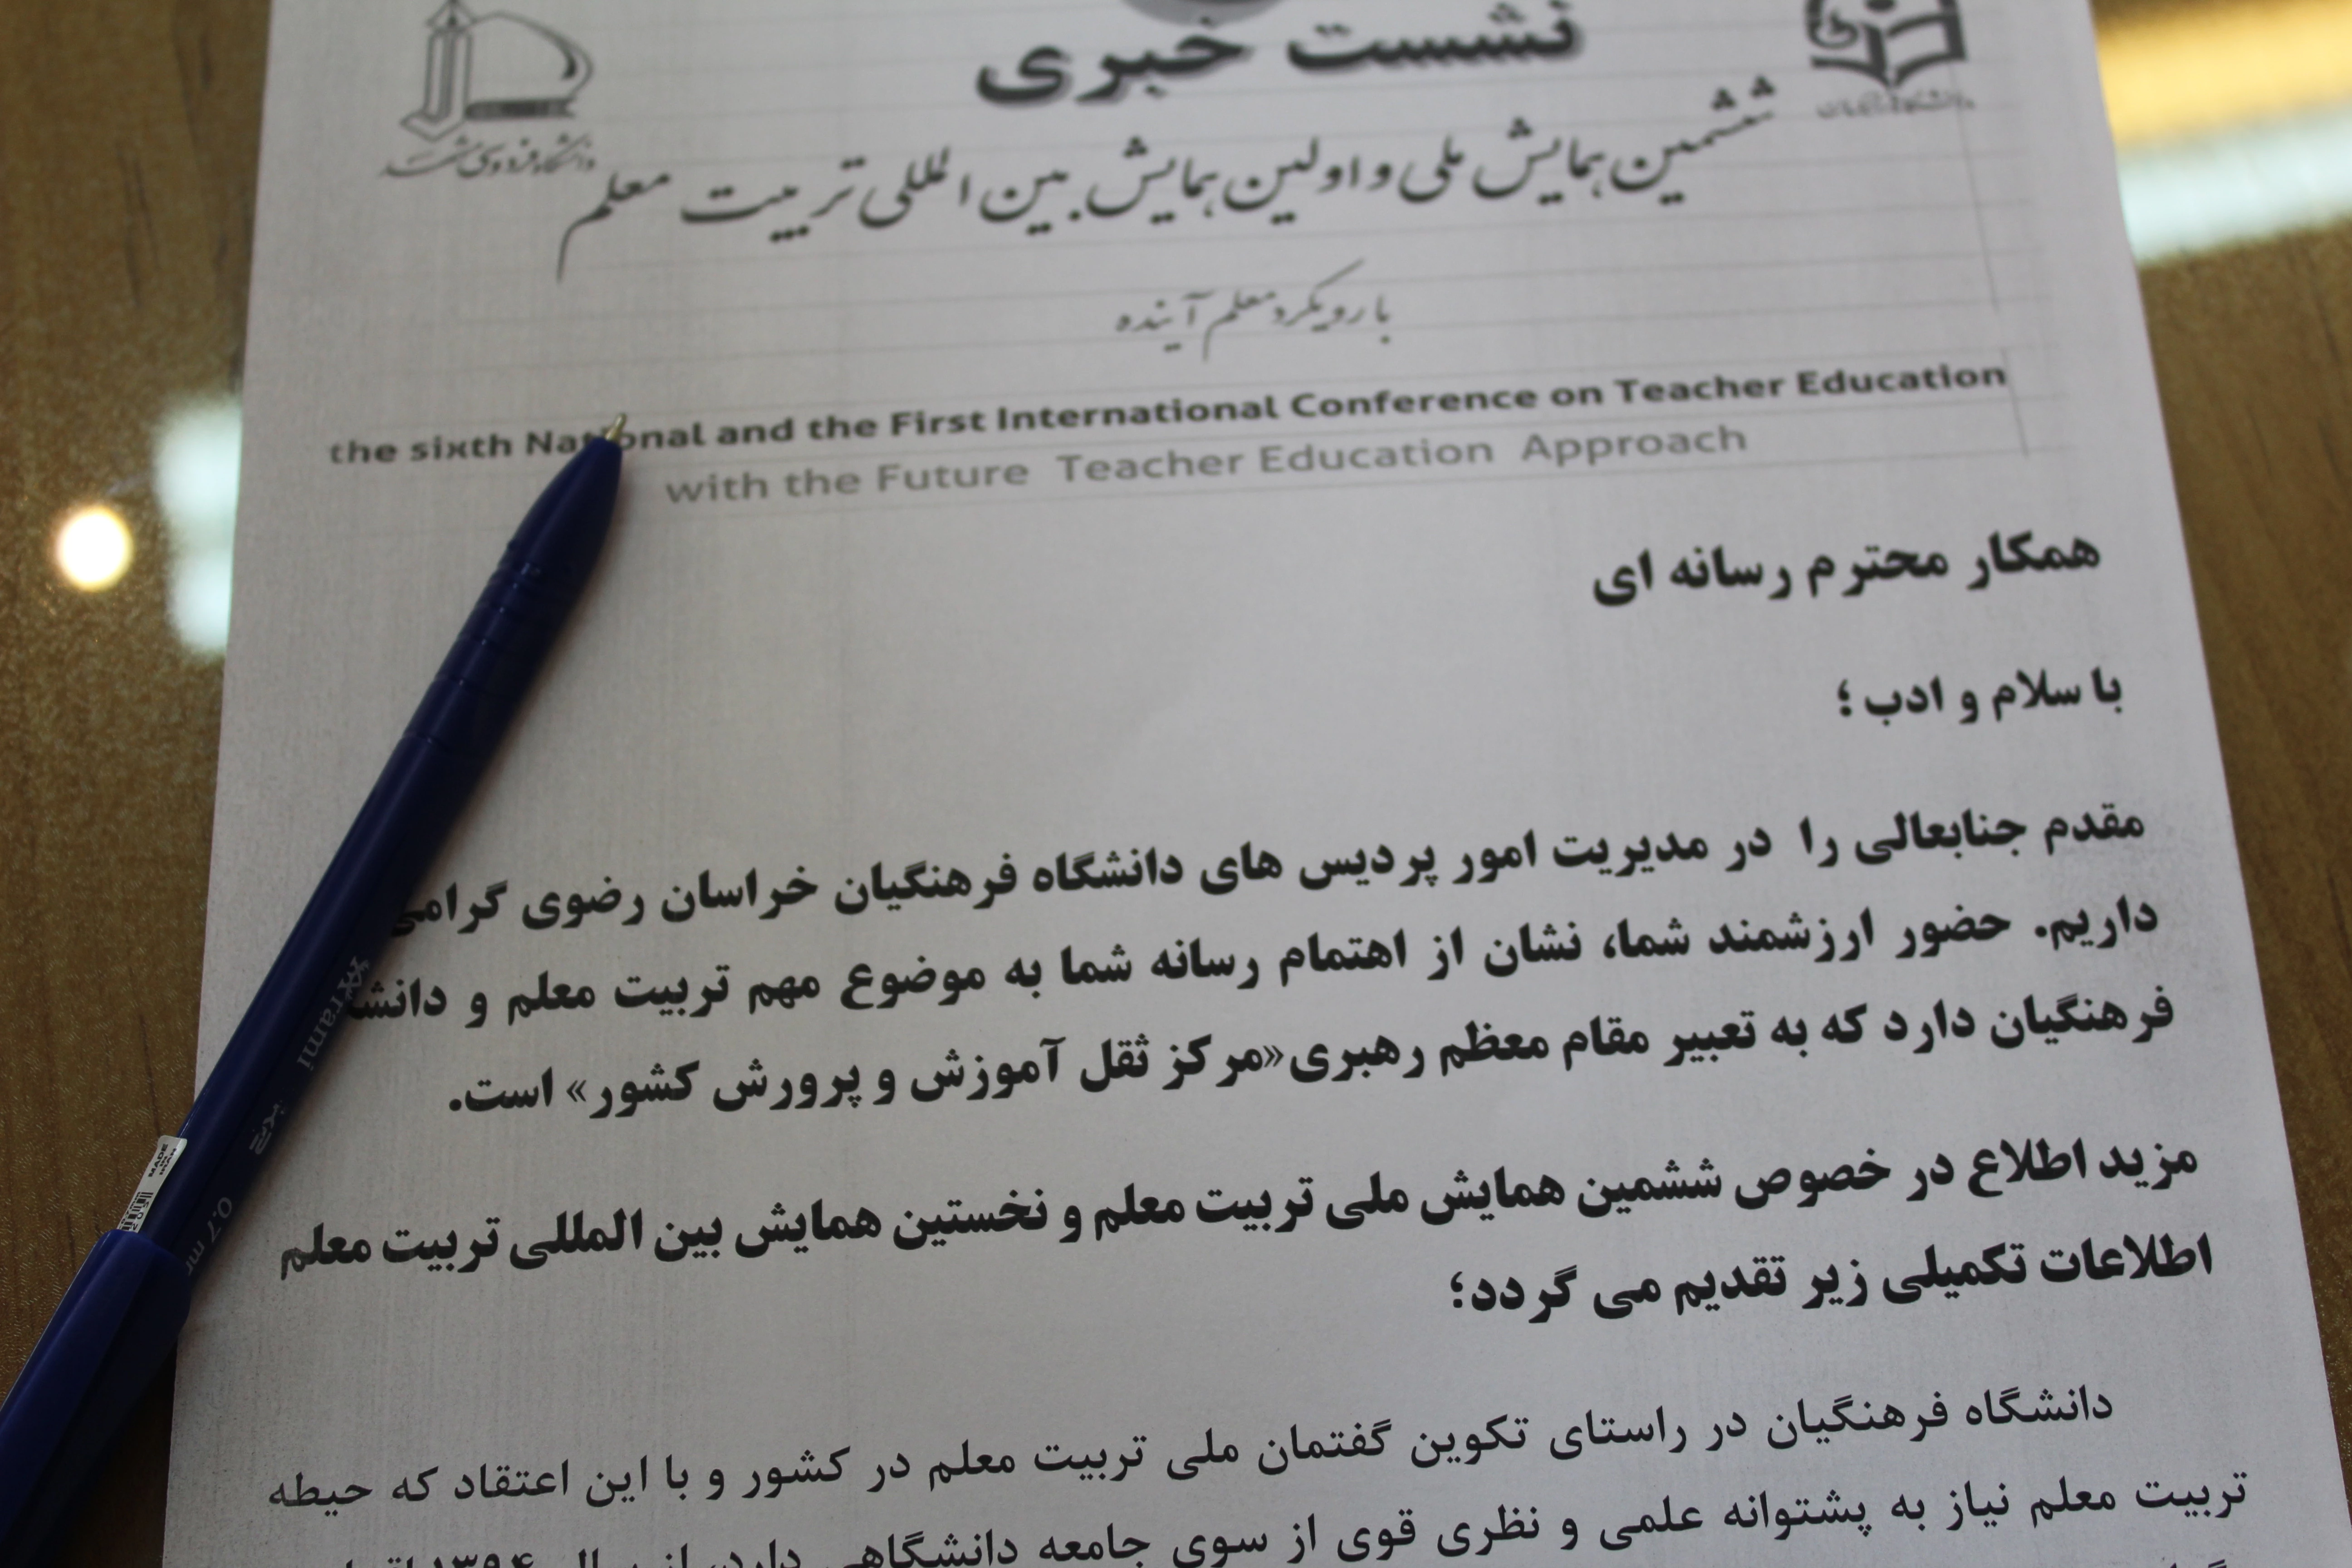 نشست خبری
دانشگاه فردوسی مشهد
ششمین همایش ملی و اولین همایش بین المللی تربیت معلم
با رویکرد معلم آینده
the sixth National and the First International Conference on Teacher Education
with the Future Teacher Education Approach
همکار محترم رسانه ای
با سلام و ادب ؛
مقدم جنابعالی را در مدیریت امور پردیس های دانشگاه فرهنگیان خراسان رضوی گرامی
داریم. حضور ارزشمند شما، نشان از اهتمام رسانه شما به موضوع مهم تربیت معلم و
فرهنگیان دارد که به تعبیر مقام معظم رهبری «مرکز ثقل آموزش و پرورش کشور» است.
مزید اطلاع در خصوص ششمین همایش ملی تربیت معلم و نخستین همایش بین المللی تربیت معلم
اطلاعات تکمیلی زیر تقدیم می گردد؛
دانشگاه فرهنگیان در راستای تکوین گفتمان ملی تربیت معلم در کشور و با این اعتقاد که حیطه
تربیت معلم نیاز به پشتوانه علمی و نظری قوی از سوی جامعه دانشگاهی دارد، از سال ۱۳۹۴
Krami
0.7 mm
MADE IN IRAN